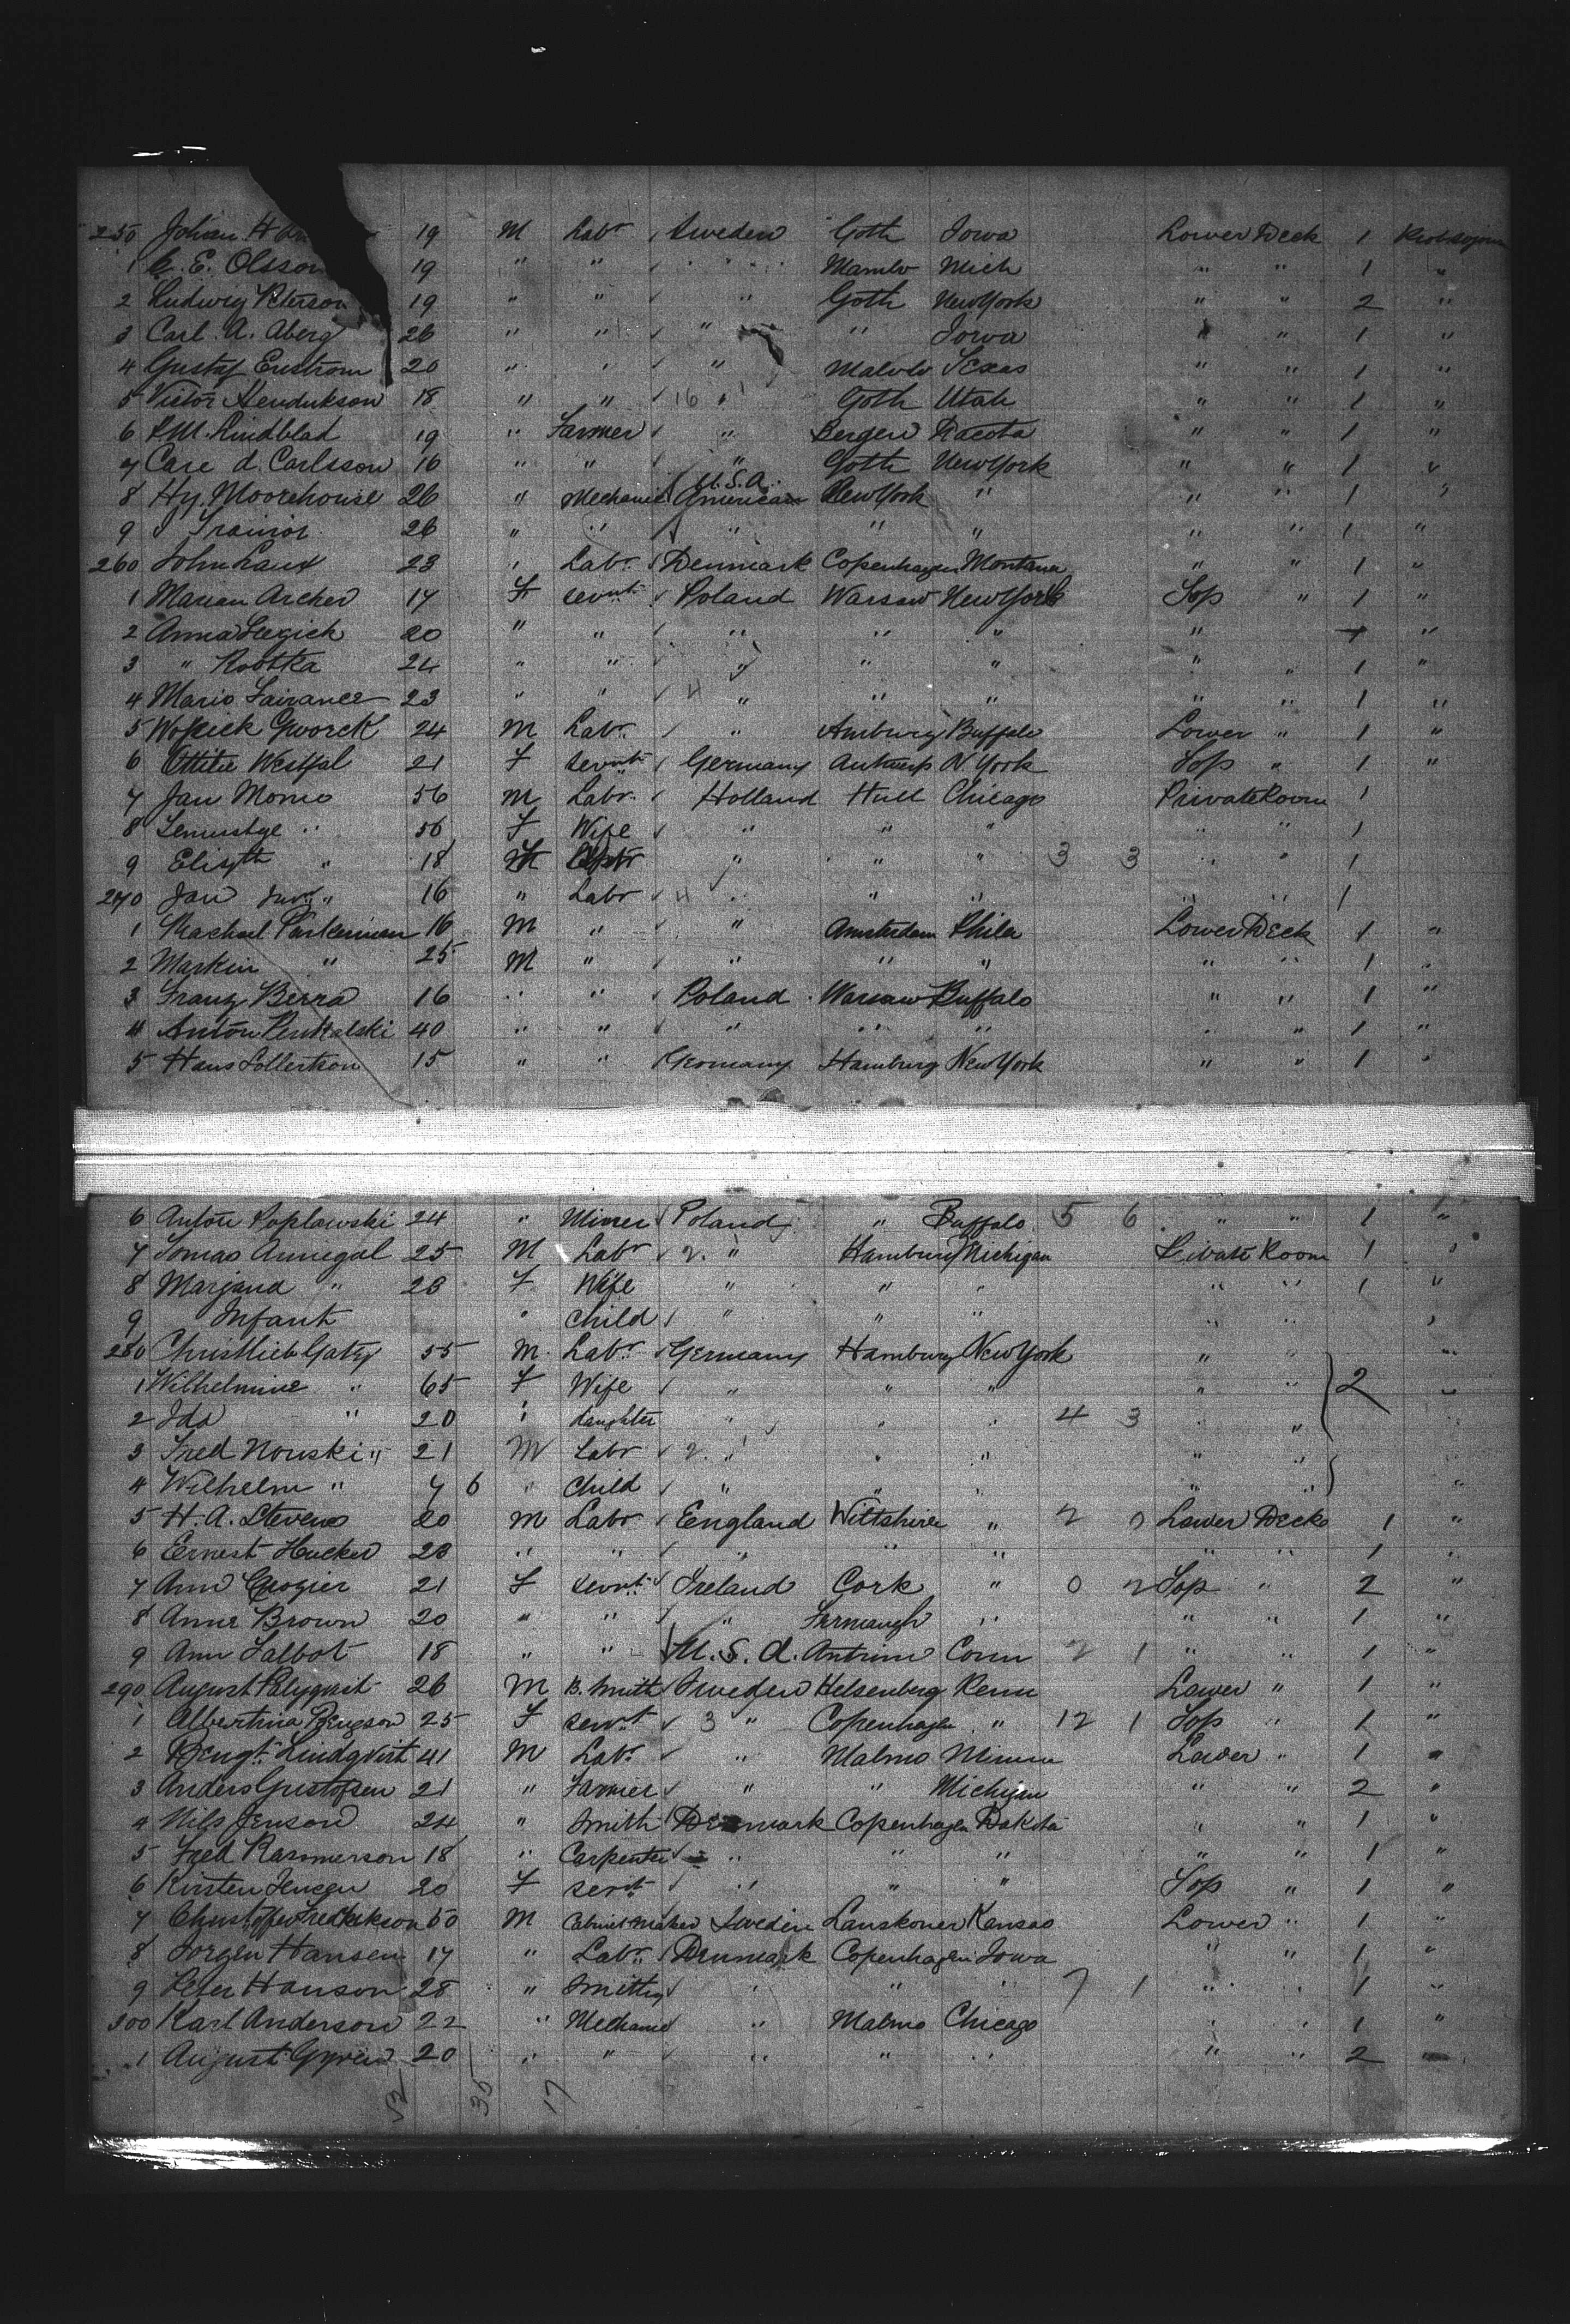 250 Johan H 19 M Labr Sweden Goth Iowa Lower Deck 1
1 C. E. Olsson 19 " " " Mich " " 1 "
2 Ludwig Peterson 19 " " " Goth New York " " 2 "
3 Carl. A. Aberg 26 " " " " Iowa " " 1 "
4 Gustaf Enstrom 20 " " " Texas " " 1 "
5 Victor Hendrikson 18 " " 16 " Goth Utah " " 1 "
6 P.M. Lindblad 19 " Farmer " Bergen Dacota " " 1 "
7 Carl A. Carlsson 16 " " " Goth New York " " 1 "
8 Hy. Moorehouse 26 " Mechanic U.S.A. American New York " " " 1 "
9 J Trainor 26 " " " " " " " 1 "
260 John Laux 23 " Labr Denmark Copenhagen Montana " " 1 "
1 Marian Archer 17 F Servnt Poland Warsaw New York Top " 1 "
2 Anna 20 " " " " " " 1 "
3 " Rootka 24 " " " " " " " 1 "
4 Mario 23 " " 4 " " " " " 1 "
5 Gworek 24 M Labr " Amburg Buffalo Lower " 1 "
6 Ottilie Westfal 21 F Servnt Germany Antwerp N York Top " 1 "
7 Jan Momo 56 M Labr Holland Hull Chicago Private Room 1
8 " 56 F Wife " " " " " 1
9 Elisth " 18 " " " 3 3 " " 1
270 Jan Junr " 16 " Labr 4 " " " " " 1
1 Rachael 16 M " " Amsterdam Phila Lower Deck 1 "
2 Markin " 25 M " " " " " " 1 "
3 Franz Berra 16 " " Poland Warsaw Buffalo " " 1 "
4 Anton 40 " " " " " " " 1 "
5 Hans 15 " " Germany Hamburg New York " " 1 "
6 Anton Poplawski 24 " Miner Poland " Buffalo 5 6 " " 1 "
7 Tomas Annegal 25 M Labr 2 " Hamburg Michigan Private Room 1 "
8 Marjand " 23 F Wife " " " " " 1 "
9 Infant " Child " " " " " "
280 Christlieb Gatz 55 M Labr Germany Hamburg New York " " "
1 Wilhelmine " 65 F Wife " " " " " 2 "
2 Ida " 20 " daughter " " " 4 3 " " "
3 Fred Nowski " 21 M Labr 2 " " " " " "
4 Wilhelm " 7 6 " Child " " " " " "
5 H. A. Stevens 20 M Labr England Wiltshire " 2 Lower Deck 1 "
6 Ernest Hucker 23 " " " " " " " 1 "
7 Ann Crozier 21 F Servnt Ireland Cork " 0 2 Top " 2 "
8 Anne Brown 20 " " " Fermaugh " " " 1 "
9 Ann Talbot 18 " " U.S.A. Antrim Conn 2 1 " " 1 "
290 August Palyquist 26 M B. Smith Sweden Helsenberg Penn Lower " 1 "
1 Albertina Bengson 25 F Servt 3 " Copenhagen " 12 1 Top " 1 "
2 Bengt Lindqvist 41 M Labr " Malmo Minn Lower " 1 "
3 Anders Gustafsen 21 " Farmer " " Michigan " " 2 "
4 Nils Jenson 24 " Smith Denmark Copenhagen Dakota " " 1 "
5 Fred Rasmerson 18 " Carpenter " " " " " 1 "
6 Kirsten Jensen 20 F Servt " " " Top " 1 "
7 Christoffer Fredrikson 50 M Cabinet maker Sweden Lanskoner Kansas Lower " 1 "
8 Jorgen Hansen 17 " Labr Denmark Copenhagen Iowa " " 1 "
9 Peter Hanson 28 " Smith " " " 7 1 " " 1 "
300 Karl Anderson 22 " Mechanic " Malmo Chicago " " 1 "
1 August Gyren 20 " " " " " " " 2 "
35 17